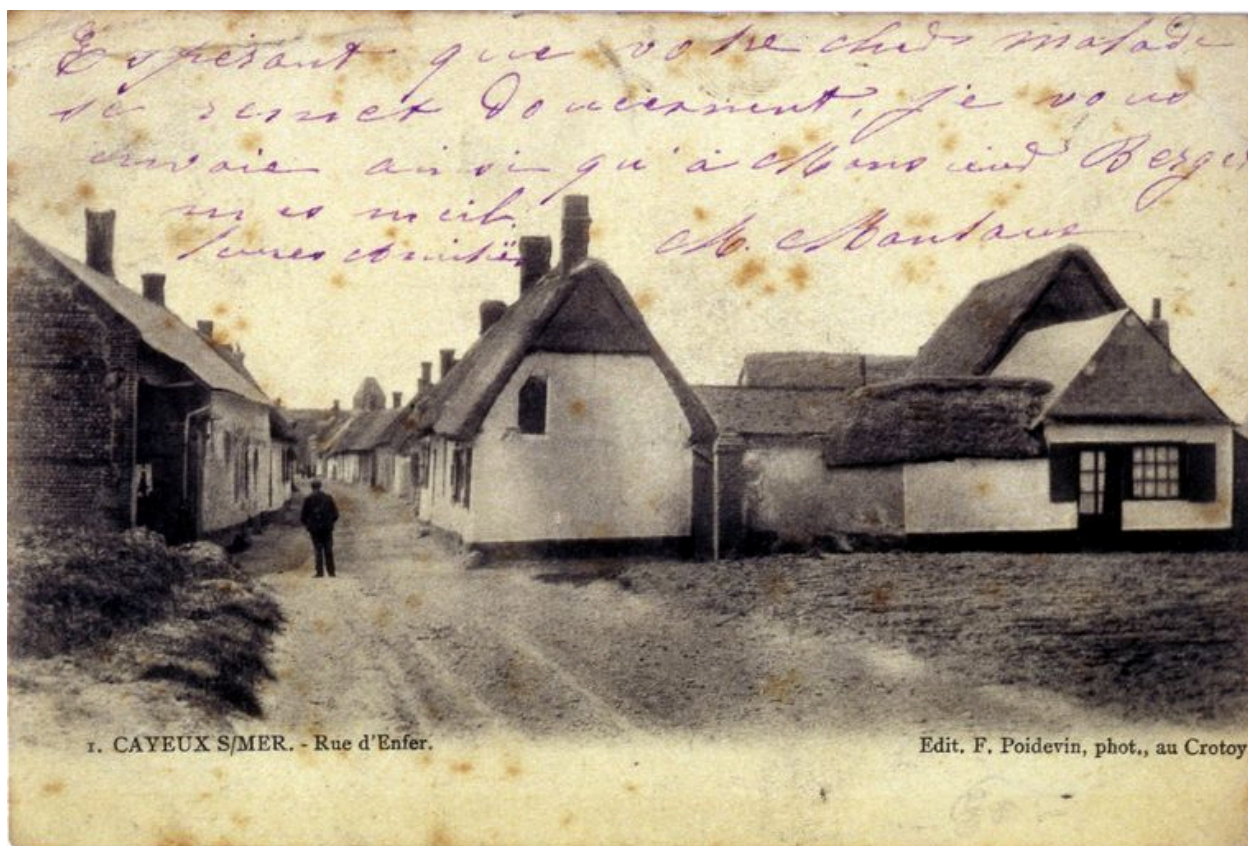 Espérant que votre cher malade
se remet doucement, je vous
envoie ainsi qu'à Monsieur Berger
mes meil
leures Amitiés M.
1. CAYEUX S/MER. - Rue d'Enfer.
Edit. F. Poidevin, phot., au Crotoy